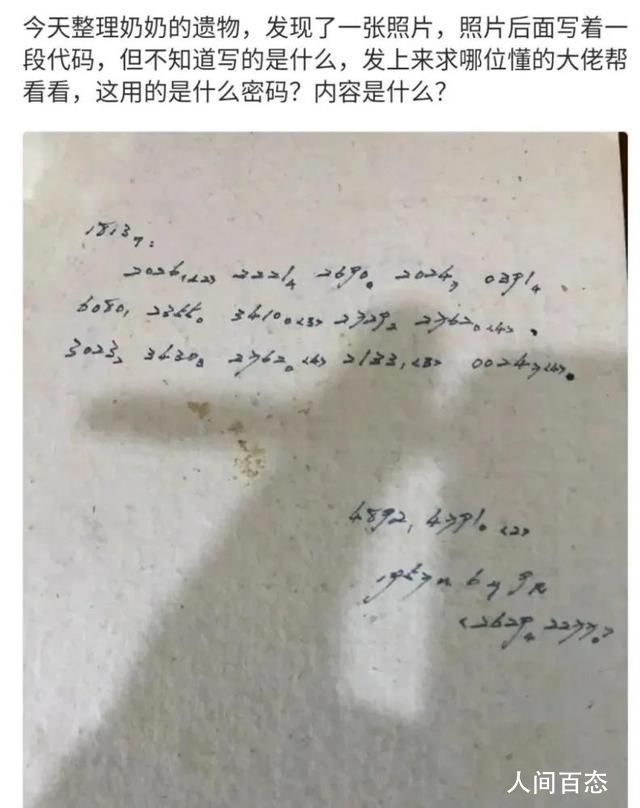 今天整理奶奶的遗物，发现了一张照片，照片后面写着一
段代码，但不知道写的是什么，发上来求哪位懂的大佬帮
看看，这用的是什么密码？内容是什么？
18137:
2026,<2> 22214 26900 20247 03914
6080, 23660 34100<3> 23292 27620<4>.
3023, 36308 27620<4> 2133,<3> 00247<4>.
4892, 47910<2>
6 9
<26294 22770>
人间百态